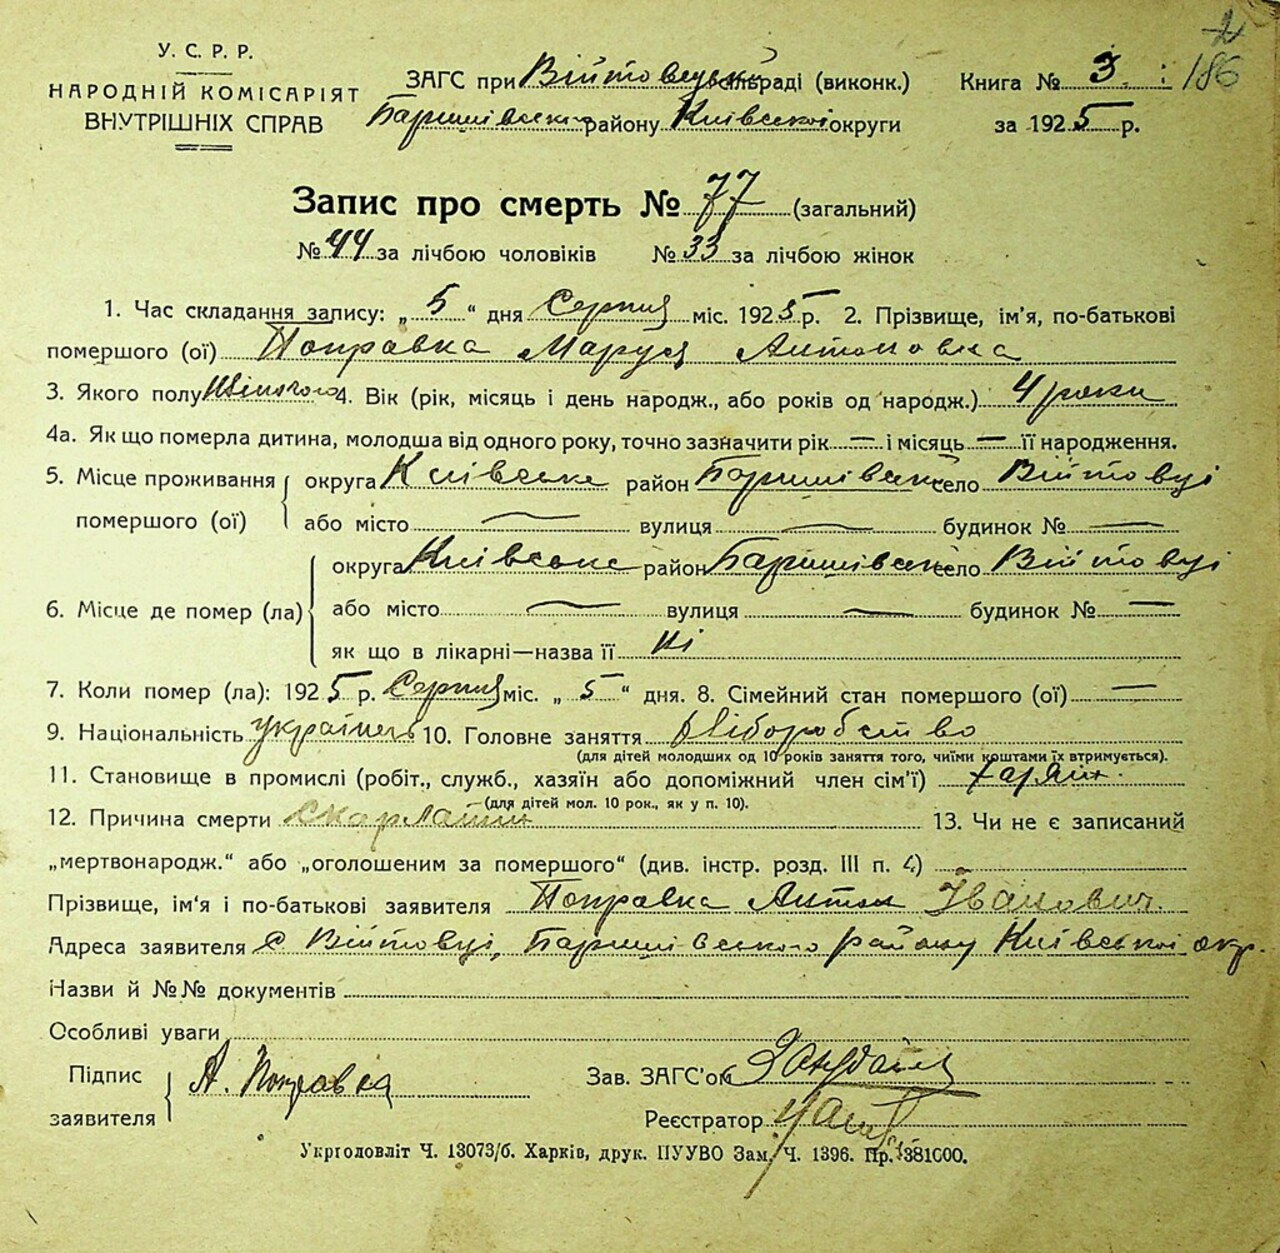 2
186
У. С. Р. Р.
НАРОДНІЙ КОМІСАРІЯТ
ВНУТРІШНІХ СПРАВ
ЗАГС при Війтовецькій сільраді (виконк.)
Баришівського району Київської округи
Книга № 3.
за 1925 р.
Запис про смерть № 77 (загальний)
№ 44 за лічбою чоловіків № 33 за лічбою жінок
1. Час складання запису: „ 5 “ дня Серпня міс. 1925 р. 2. Прізвище, ім'я, по-батькові
помершого (ої) Поправка Маруся Антоновна
3. Якого полу Жіночого 4. Вік (рік, місяць і день народж., або років од народж.) 4 роки
4а. Як що померла дитина, молодша від одного року, точно зазначити рік — і місяць — її народження.
5. Місце проживання округа Київська район Баришівськ село Війтовці
помершого (ої) або місто — вулиця — будинок № —
округа Київська район Баришівськ село Війтовці
6. Місце де помер (ла) або місто — вулиця — будинок № —
як що в лікарні—назва її Ні
7. Коли помер (ла): 1925 р. Серпня міс. „ 5 “ дня. 8. Сімейний стан помершого (ої) —
9. Національність українець 10. Головне заняття Хліборобство
(для дітей молодших од 10 років заняття того, чиїми коштами їх втримується).
11. Становище в промислі (робіт., служб., хазяїн або допоміжний член сім'ї) Хазяїн.
(для дітей мол. 10 рок., як у п. 10).
12. Причина смерти Скарлатин 13. Чи не є записаний
„мертвонародж.“ або „оголошеним за помершого“ (див. інстр. розд. III п. 4)
Прізвище, ім'я і по-батькові заявителя Поправка Антон Іванович.
Адреса заявителя с Війтовці, Баришівського району Київської окр.
Назви й №№ документів
Особливі уваги
Підпис
заявителя А. Поправка
Зав. ЗАГС'ом
Реєстратор
Укрголовліт Ч. 13073/б. Харків, друк. ПУУВО Зам. Ч. 1396. Пр. 381000.